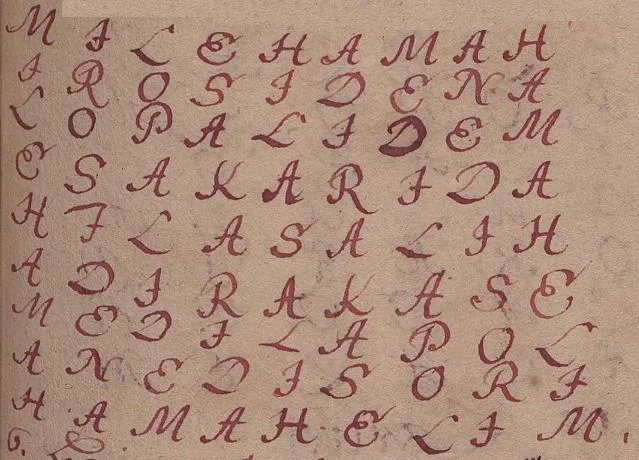 M I L E H A M A H
I R O S I D E N A
L O P A L I D E M
E S A K A R I D A
H I L A S A L I H
A D I R A K A S E
M E D I L A P O L
A N E D I S O R I
H A M A H E L I M.
6.